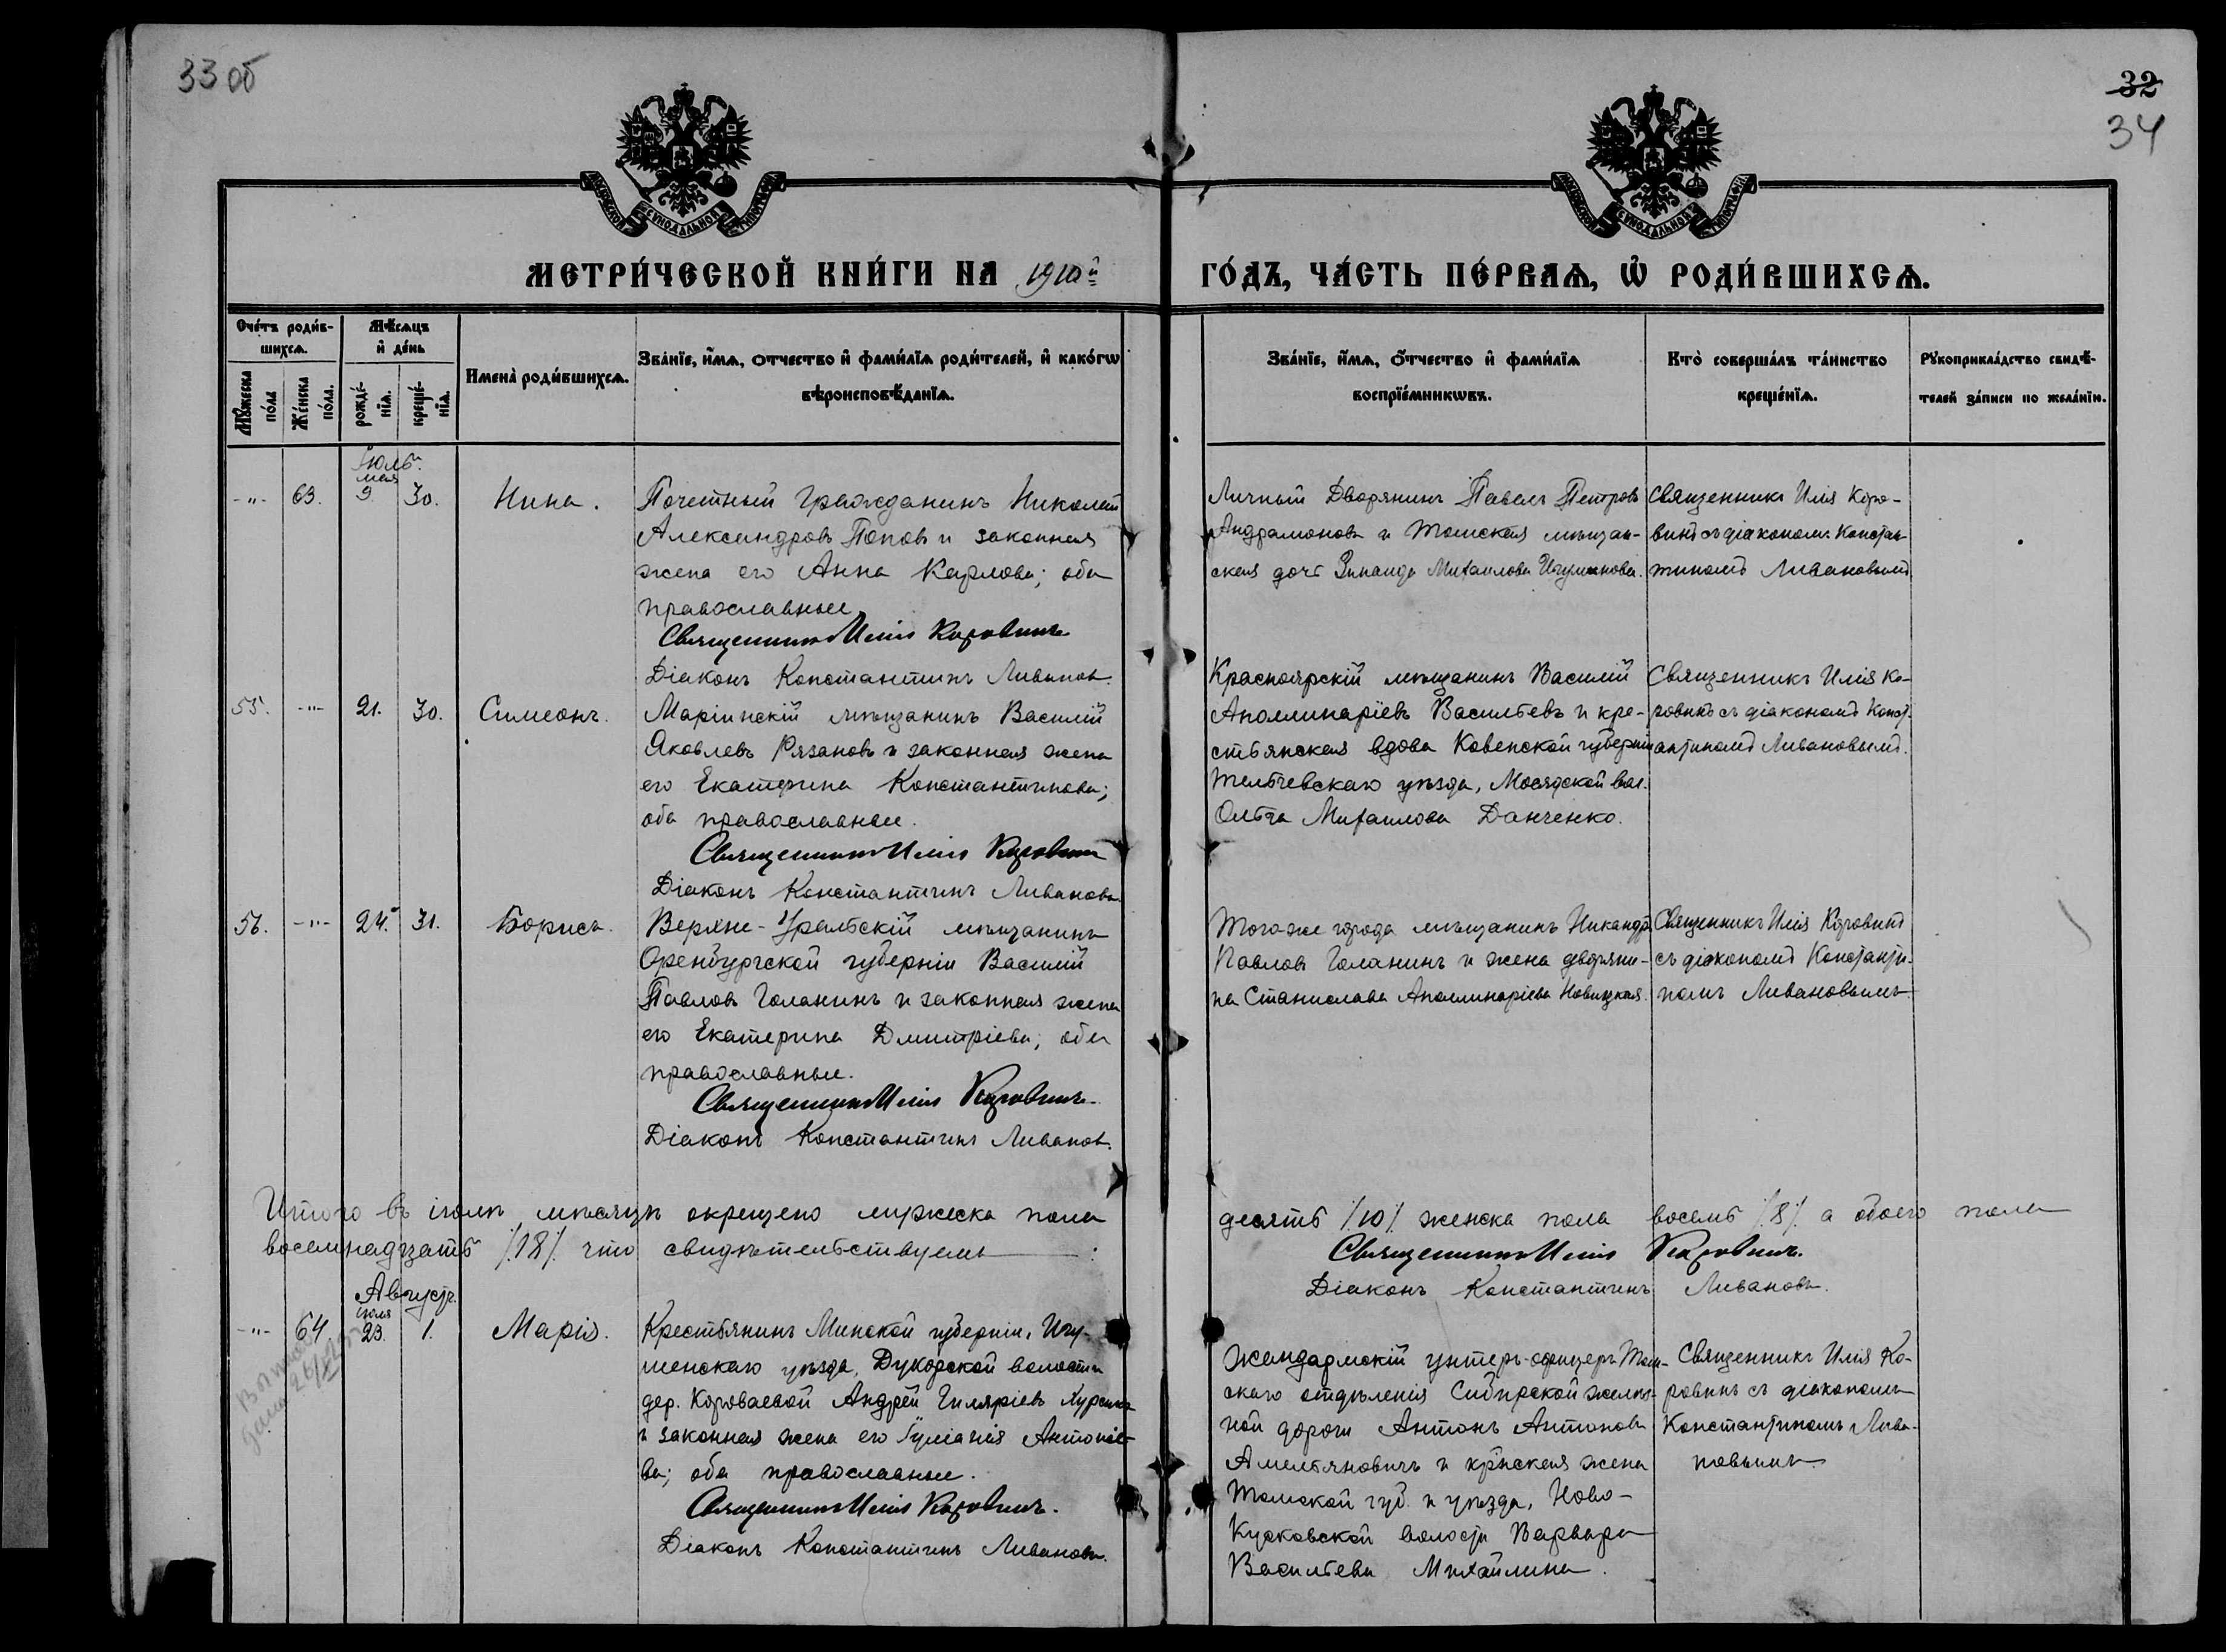 33 об
32
34
МЕТРИ́ЧЕСКОЙ КНИ́ГИ НА 1910й
ГО́ДЪ, ЧА́СТЬ ПЕ́РВАѦ, Ѿ РОДИ́ВШИХСѦ.
Сче́тъ роди́в-
шихсѧ.
Мѣ́сѧцъ
и҆ де́нь
Мꙋ́жеска
по́ла
Же́нска
по́ла.
рожде́-
нїѧ.
креще́-
нїѧ.
Имена̀ роди́вшихсѧ.
Зва́нїе, и҆́мѧ, о́тчество и҆ фами́лїѧ роди́телей, и҆ како́гѡ
вѣроисповѣ́данїѧ.
Зва́нїе, и҆́мѧ, о́тчество и҆ фами́лїѧ
воспрїе́мникѡвъ.
Кто̀ соверша́лъ та́инство
креще́нїѧ.
Рꙋкоприкла́дство свидѣ́-
телей за́писи по жела́нїю.
Іюль.
мая
-"- 63. 9. 30. Нина.
Почетный Гражданинъ Николай
Александровъ Поповъ и законная
жена его Анна Карлова; оба
православные
Священникъ Илія Коровинъ
Діаконъ Константинъ Ливановъ.
Личный Дворянинъ Павелъ Петровъ
Андрамоновъ и Томская мѣщан-
ская дочь Зинаида Михаилова Игуменова.
Священникъ Илія Коро-
винъ съ діакономъ Констан-
тиномъ Ливановымъ.
55. -"- 21. 30. Симеонъ.
Маріинскій мѣщанинъ Василій
Яковлевъ Рязановъ и законная жена
его Екатерина Константинова;
оба православные.
Священникъ Илія Коровинъ
Діаконъ Константинъ Ливановъ
Красноярскій мѣщанинъ Василій
Аполлинаріевъ Васильевъ и кре-
стьянская вдова Ковенской губерніи
Тельшевскаго уѣзда, Мосядской вол.
Ольга Михаилова Данченко.
Священникъ Илія Ко-
ровинъ съ діакономъ Конст-
антиномъ Ливановымъ.
56. -"- 24. 31. Борисъ.
Верхне-Уральскій мѣщанинъ
Оренбургской губерніи Василій
Павловъ Голанинъ и законная жена
его Екатерина Дмитріева; оба
православные.
Священникъ Илія Коровинъ.
Діаконъ Константинъ Ливановъ.
Того-же города мѣщанинъ Никандръ
Павловъ Голанинъ и жена дворяни-
на Станислава Аполлинаріева Новицкая.
Священникъ Илія Коровинъ
съ діакономъ Константи-
номъ Ливановымъ.
Итого въ іюлѣ мѣсяцѣ окрещено мужеска пола
десять /10/ женска пола восемь /8/ а обоего пола
восемнадцать /18/ что свидѣтельствуемъ:
Священникъ Илія Коровинъ.
Діаконъ Константинъ Ливановъ.
Августъ.
іюля
-"- 64. 23. 1. Марія.
Крестьянинъ Минской губерніи, Игу-
менскаго уѣзда, Дукорской волости
дер. Короваевой Андрей Гиляріевъ
и законная жена его Іуліанія Антоніе-
ва; оба православные.
Священникъ Илія Коровинъ.
Діаконъ Константинъ Ливановъ.
Жандармскій унтеръ-офицеръ Том-
скаго отдѣленія Сибирской желѣз-
ной дороги Антонъ Антоновъ
Амельяновичъ и кр-нская жена
Томской губ. и уѣзда, Ново-
Кусковской волости Варвара
Васильева Михайлина.
Священникъ Илія Ко-
ровинъ съ діакономъ
Константиномъ Лива-
новымъ.